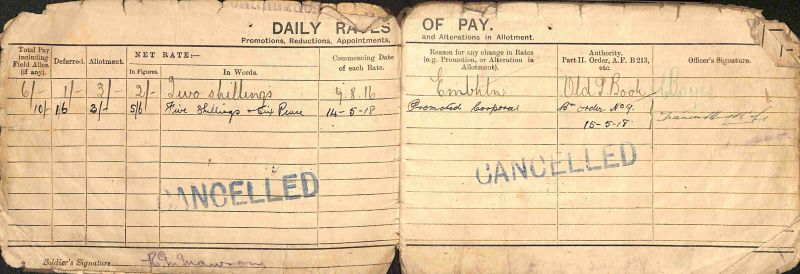 DAILY RATES OF PAY.
Promotions, Reductions, Appointments, and Alterations in Allotment.
Total Pay including Field Allce. (if any).
Deferred.
Allotment.
NET RATE:—
In Figures.
In Words.
Commencing Date of each Rate.
Reason for any change in Rates (e.g. Promotion, or Alteration in Allotment).
Authority. Part II. Order, A.F. B 213, etc.
Officer's Signature.
6/- 1/- 3/- 2/- Two shillings 9.8.16 Embktn Old P. Book
10/- 1/6 3/- 5/6 Five Shillings + Six Pence 14-5-18 Promoted Corporal Bn order No 9.
15-5-18
CANCELLED
CANCELLED
Soldier's Signature